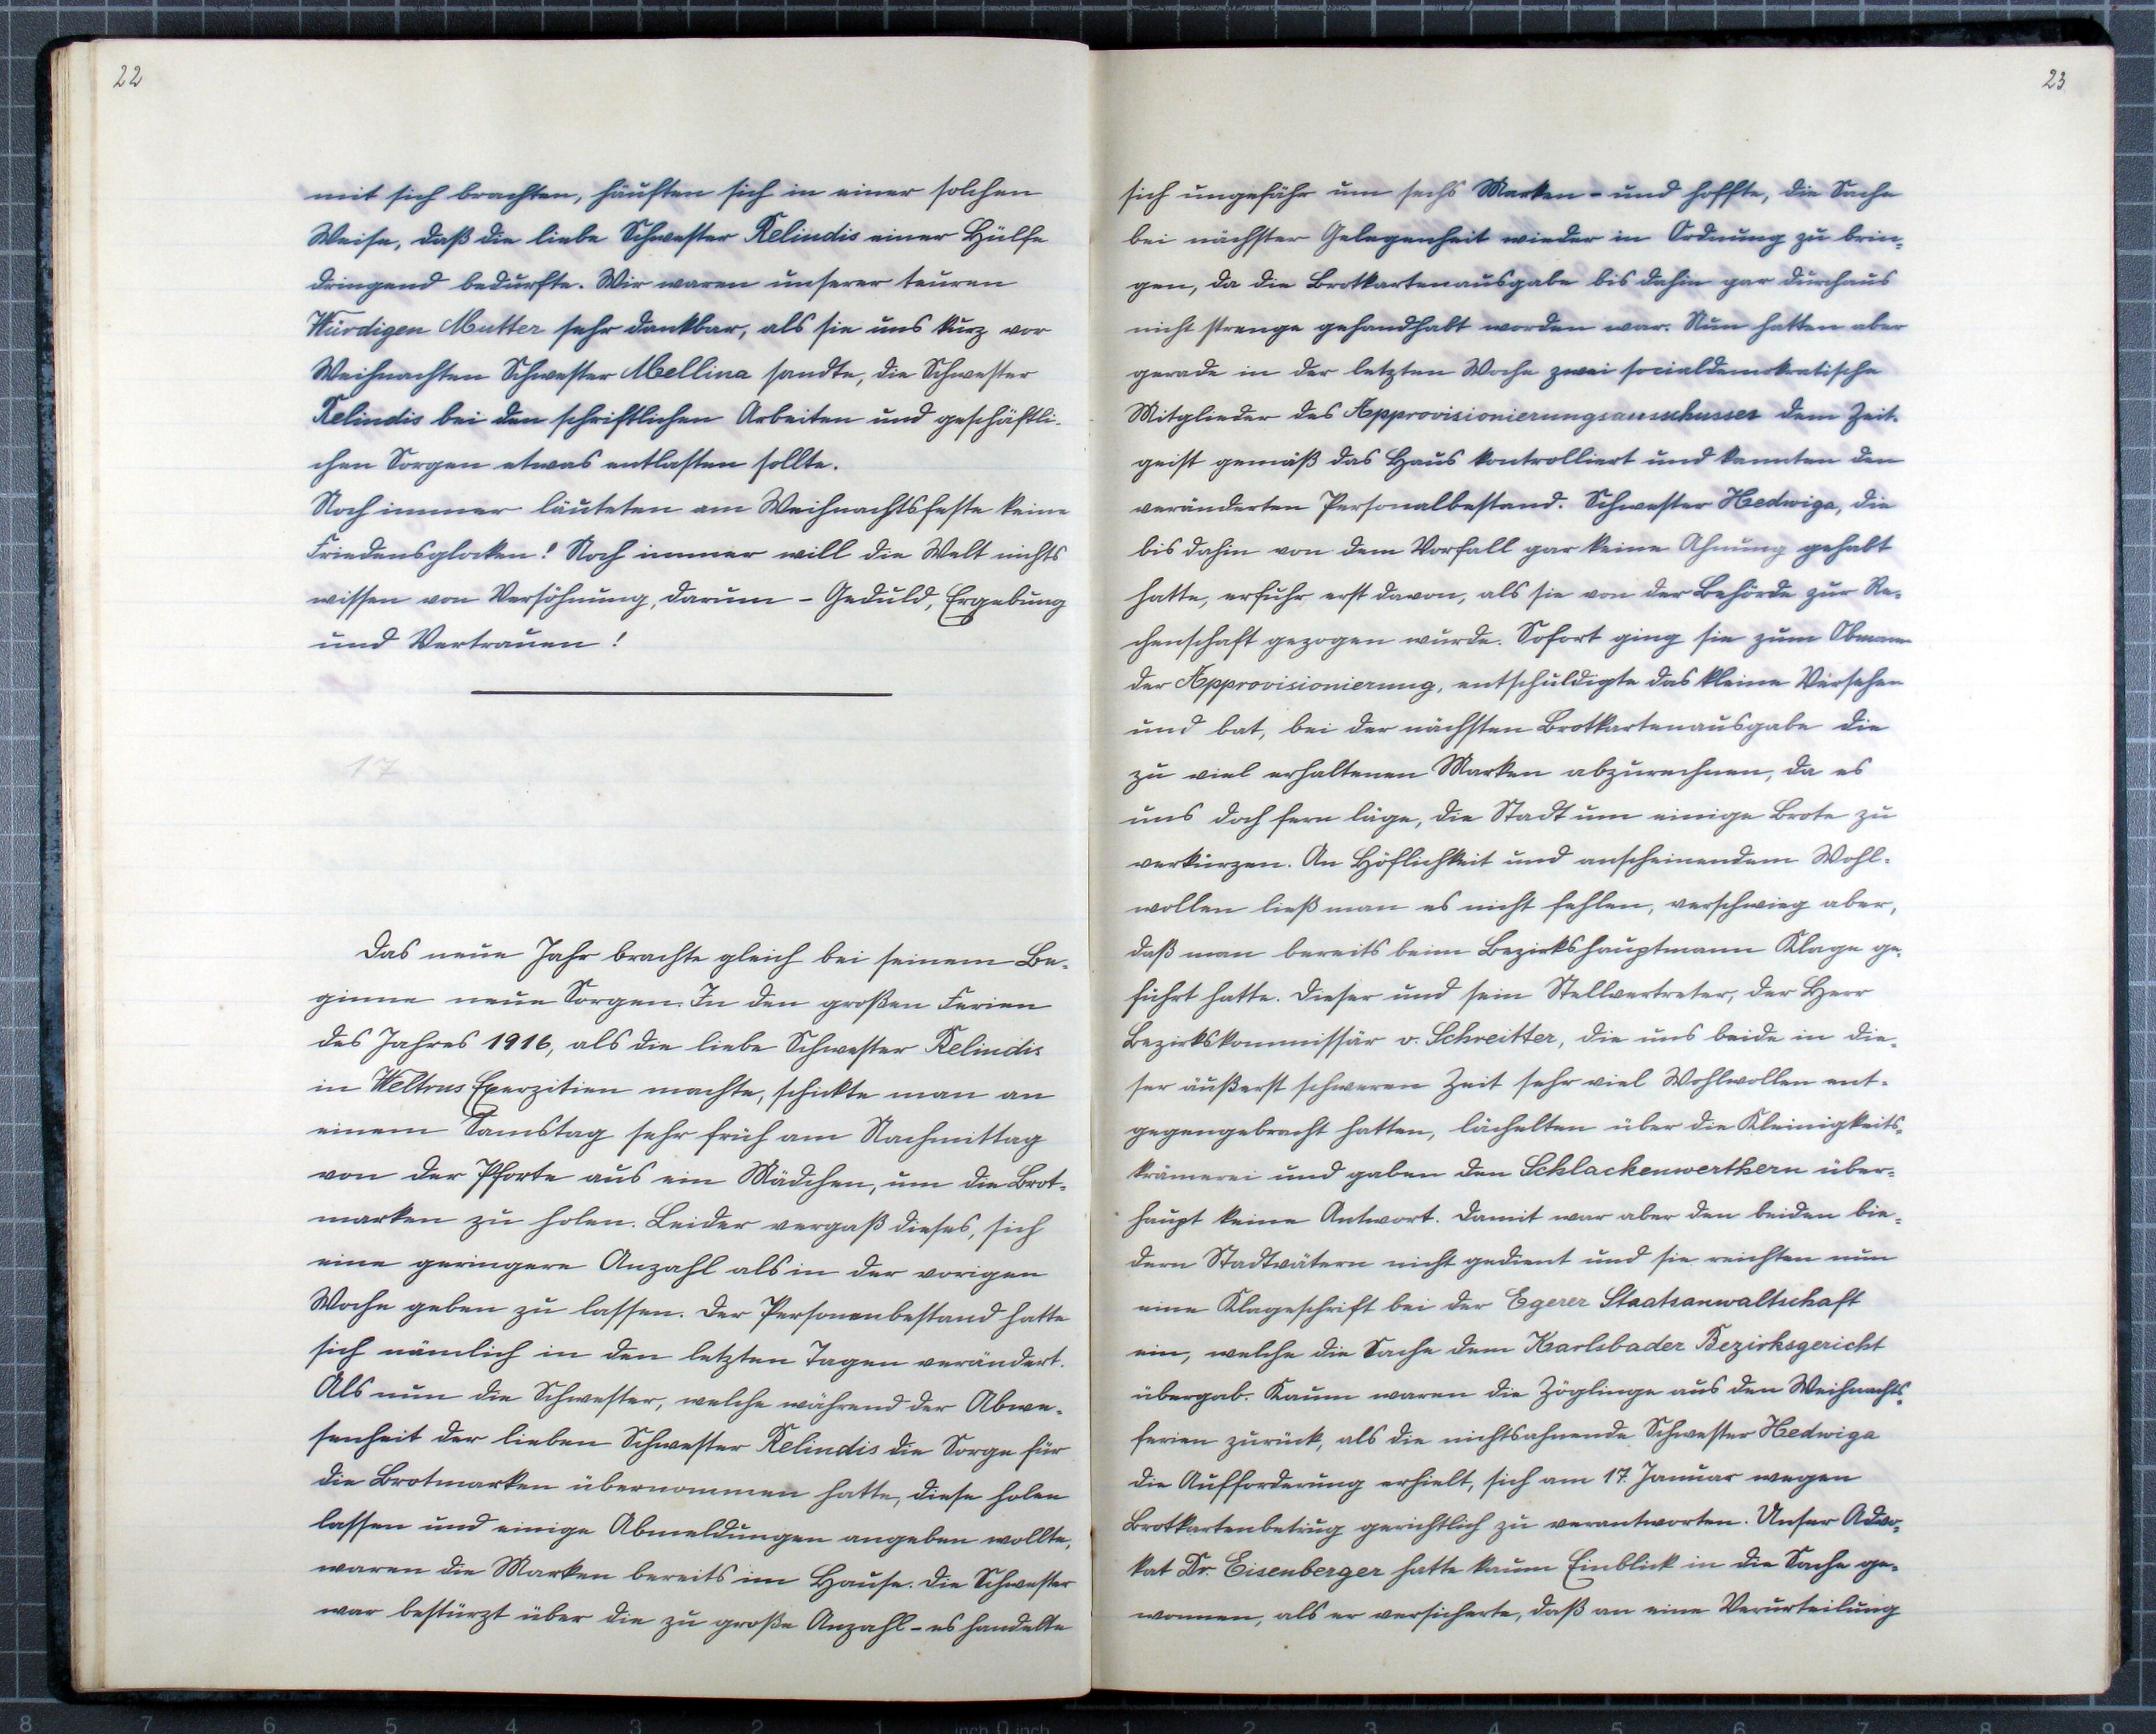 22
mit sich brachten, häuften sich in einer solchen
Weise, daß die liebe Schwester Relindis einer Hülfe
dringend bedurfte. Wir waren unserer teuren
Würdigen Mutter sehr dankbar, als sie uns kurz vor
Weihnachten Schwester Mellina sandte, die Schwester
Relindis bei den schriftlichen Arbeiten und geschäftli-
chen Sorgen etwas entlasten sollte.
Noch immer läuteten am Weihnachtsfeste keine
Friedensglocken! Noch immer will die Welt nichts
wissen von Versöhnung, darum - Geduld, Ergebung
und Vertrauen!
17
Das neue Jahr brachte gleich bei seinem Be-
ginne neue Sorgen. In den großen Ferien
des Jahres 1916, als die liebe Schwester Relindis
in Weltrus Exerzitien machte, schickte man an
einem Samstag sehr früh am Nachmittag
von der Pforte aus ein Mädchen, um die Brot-
marken zu holen. Leider vergaß dieses, sich
eine geringere Anzahl als in der vorigen
Woche geben zu lassen. Der Personenbestand hatte
sich nämlich in den letzten Tagen verändert.
Als nun die Schwester, welche während der Abwe-
senheit der lieben Schwester Relindis die Sorge für
die Brotmarken übernommen hatte, diese holen
lassen und einige Abmeldungen angeben wollte,
waren die Marken bereits im Hause. Die Schwester
war bestürzt über die zu große Anzahl - es handelte
23
sich ungefähr um sechs Marken - und hoffte, die Sache
bei nächster Gelegenheit wieder in Ordnung zu brin-
gen, da die Brotkartenausgabe bis dahin gar durchaus
nicht strenge gehandhabt worden war. Nun hatten aber
gerade in der letzten Woche zwei socialdemokratische
Mitglieder des Approvisionierungsausschusses dem Zeit-
geist gemäß das Haus kontrolliert und kannten den
veränderten Personalbestand. Schwester Hedwiga, die
bis dahin von dem Vorfall gar keine Ahnung gehabt
hatte, erfuhr erst davon, als sie von der Behörde zur Re-
chenschaft gezogen wurde. Sofort ging sie zum Obmann
der Approvisionierung, entschuldigte das kleine Versehen
und bat, bei der nächsten Brotkartenausgabe die
zu viel erhaltenen Marken abzurechnen, da es
uns doch fern läge, die Stadt um einige Brote zu
verkürzen. An Höflichkeit und anscheinendem Wohl-
wollen ließ man es nicht fehlen, verschwieg aber,
daß man bereits beim Bezirkshauptmann Klage ge-
führt hatte. Dieser und sein Stellvertreter, der Herr
Bezirkskommissär v. Schreitter, die uns beide in die-
ser äußerst schweren Zeit sehr viel Wohlwollen ent-
gegengebracht hatten, lächelten über die Kleinigkeits-
krämerei und gaben den Schlackenwerthern über-
haupt keine Antwort. Damit war aber den beiden bie-
dern Stadtvätern nicht gedient und sie reichten nun
eine Klageschrift bei der Egerer Staatsanwaltschaft
ein, welche die Sache dem Karlsbader Bezirksgericht
übergab. Kaum waren die Zöglinge aus den Weihnachts-
ferien zurück, als die nichtsahnende Schwester Hedwiga
die Aufforderung erhielt, sich am 17. Januar wegen
Brotkartenbetrug gerichtlich zu verantworten. Unser Advo-
kat Dr. Eisenberger hatte kaum Einblick in die Sache ge-
wonnen, als er versicherte, daß an eine Verurteilung
8 7 6 5 4 3 2 1 inch 0 inch 1 2 3 4 5 6 7 8 9